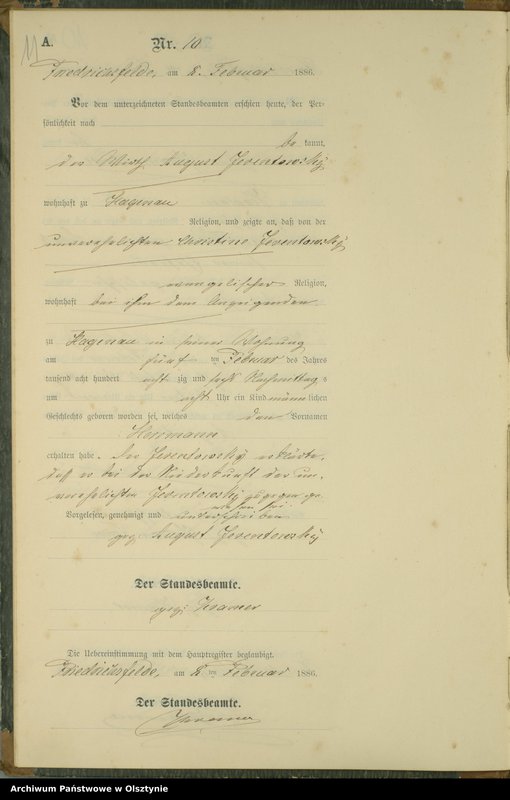 A.
Nr. 10
Friedrichsfelde, am 8. Februar 1886.
Vor dem unterzeichneten Standesbeamten erschien heute, der Per-
sönlichkeit nach
be kannt,
der Wirth August Jerentowsky
wohnhaft zu Hagenau
Religion, und zeigte an, daß von der
unverehelichten Christine Jerentowsky
evangelischer Religion,
wohnhaft bei ihm dem Anzeigenden
zu Hagenau in seiner Wohnung
am fünf ten Februar des Jahres
tausend acht hundert acht zig und sechs Nachmittag s
um acht Uhr ein Kind männ lichen
Geschlechts geboren worden sei, welches den Vornamen
Herrmann
erhalten habe. Der Jerentowsky erklärte,
daß er bei der Niederkunft der un-
verehelichten Jerentowsky zugegen ge-
wesen sei.
Vorgelesen, genehmigt und unterschrieben
gez. August Jerentowsky
Der Standesbeamte.
gez.
Die Uebereinstimmung mit dem Hauptregister beglaubigt.
Friedrichsfelde, am 8 ten Februar 1886.
Der Standesbeamte.
Archiwum Państwowe w Olsztynie